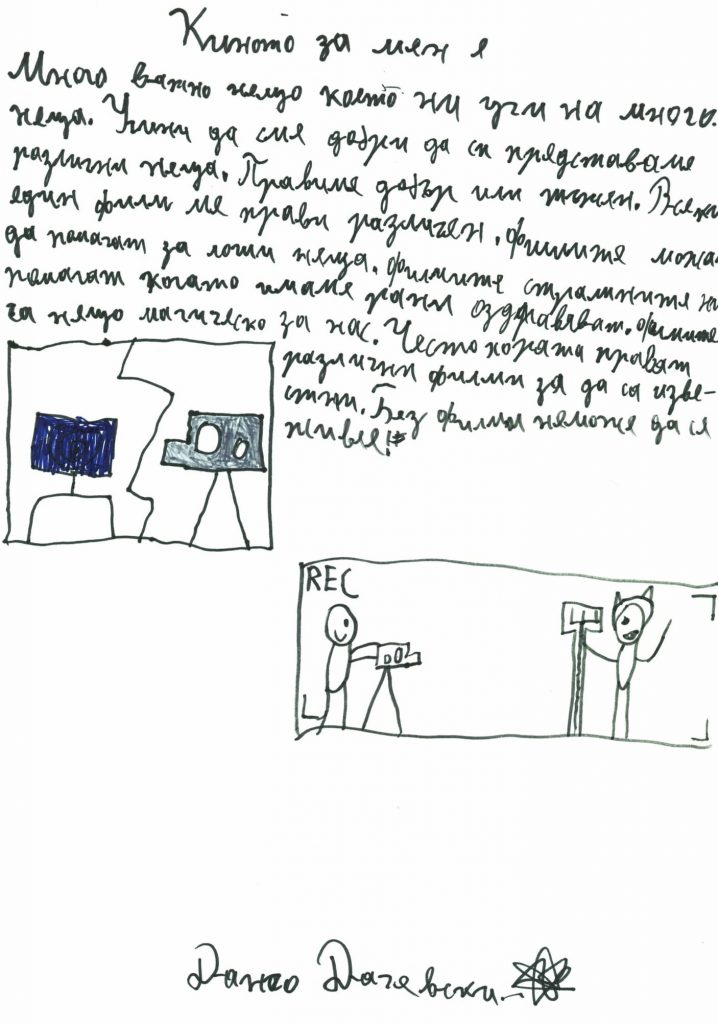 Киното за мен е
Много важно нещо което ни учи на много
неща. Учини да сме добри да си представяме
различни неща. Правиме добър или тъжен. Всеки
един филм ме прави различен. Филмите можа
да помагат за лоши неща. Филмите страшните на
помагат когато имаме рани оздравяват. Филмите
са нещо магическо за нас. Често хората правят
различни филми за да са изве-
стни. Без филми неможе да се
живее!
REC
Данко Дачевски